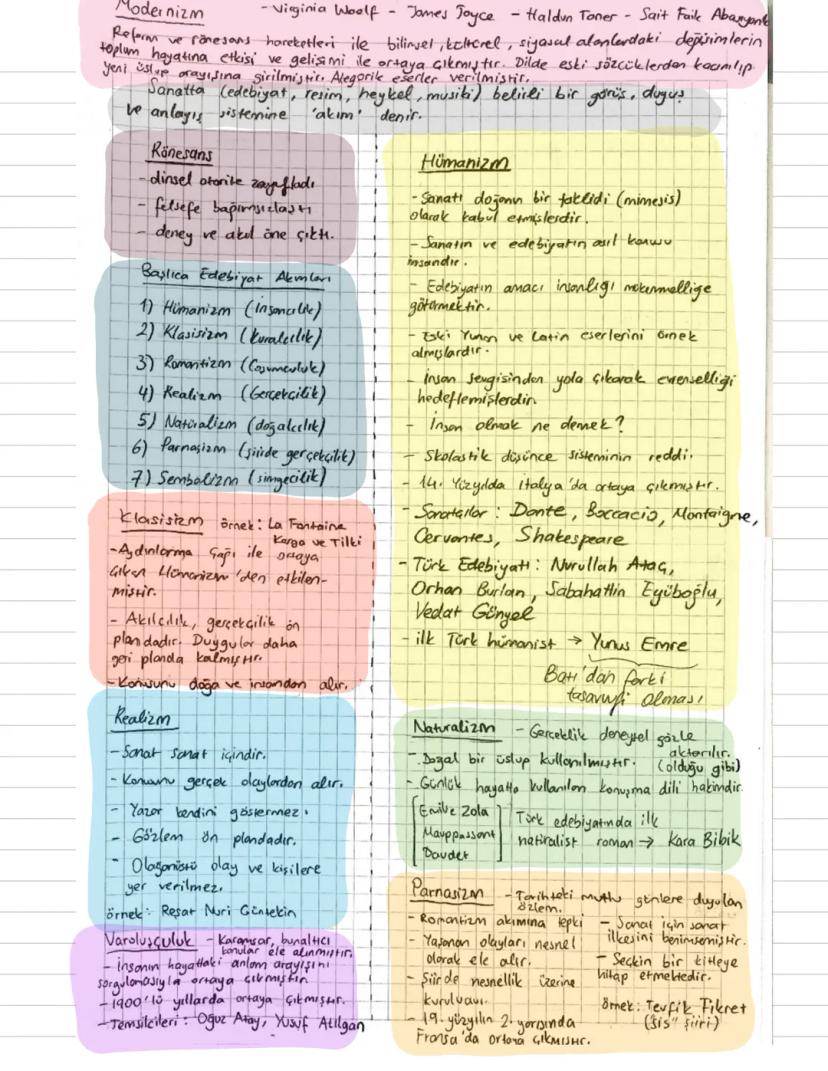 Modernizm - Virginia Woolf - James Joyce - Haldun Taner - Sait Faik Abasıyanık
Reform ve rönesans hareketleri ile bilimsel, kültürel, siyasal alanlardaki değişimlerin
toplum hayatına etkisi ve gelişimi ile ortaya çıkmıştır. Dilde eski sözcüklerden kaçınılıp
yeni üslup arayışına girilmiştir. Alegorik eserler verilmiştir.
Sanatta (edebiyat, resim, heykel, musiki) belirli bir görüş, duyuş
ve anlayış sistemine 'akım' denir.
Rönesans
- dinsel otorite zayıfladı
- felsefe bağımsızlaştı
- deney ve akıl öne çıktı.
Başlıca Edebiyat Akımları
1) Hümanizm (İnsancılık)
2) Klasisizm (kuralcılık)
3) Romantizm (Coşumculuk)
4) Realizm (Gerçekçilik)
5) Natüralizm (doğalcılık)
6) Parnasizm (şiirde gerçekçilik)
7) Sembolizm (simgecilik)
Klasisizm örnek: La Fontaine
Karga ve Tilki
- Aydınlanma Çağı ile ortaya
çıkan Hümanizm'den etkilen-
miştir.
- Akılcılık, gerçekçilik ön
plandadır. Duygular daha
geri planda kalmıştır.
- Konusunu doğa ve insandan alır.
Realizm
- Sanat sanat içindir.
- Konusunu gerçek olaylardan alır.
- Yazar kendini göstermez.
- Gözlem ön plandadır.
- Olağanüstü olay ve kişilere
yer verilmez.
örnek: Reşat Nuri Güntekin
Varoluşçuluk - Karamsar, bunaltıcı
konular ele alınmıştır.
- İnsanın hayattaki anlam arayışını
sorgulamasıyla ortaya çıkmıştır.
- 1900'lü yıllarda ortaya çıkmıştır.
- Temsilcileri: Oğuz Atay, Yusuf Atılgan
Hümanizm
- Sanatı doğanın bir taklidi (mimesis)
olarak kabul etmişlerdir.
- Sanatın ve edebiyatın asıl konusu
insandır.
- Edebiyatın amacı insanlığı mükemmelliğe
götürmektir.
- Eski Yunan ve Latin eserlerini örnek
almışlardır.
- İnsan sevgisinden yola çıkarak evrenselliği
hedeflemişlerdir.
- İnsan olmak ne demek?
- Skolastik düşünce sisteminin reddi.
- 14. Yüzyılda İtalya'da ortaya çıkmıştır.
- Sanatçılar: Dante, Boccacio, Montaigne,
Cervantes, Shakespeare
- Türk Edebiyatı: Nurullah Ataç,
Orhan Burian, Sabahattin Eyüboğlu,
Vedat Günyol
- ilk Türk hümanist → Yunus Emre
Batı'dan farkı
tasavvufi olması
Naturalizm - Gerçeklik deneysel gözle
aktarılır.
- Doğal bir üslup kullanılmıştır. (olduğu gibi)
- Günlük hayatta kullanılan konuşma dili hakimdir.
Emile Zola
Mauppassant
Daudet
Türk edebiyatında ilk
natüralist roman → Kara Bibik
Parnasizm - Tarihteki mutlu günlere duyulan
özlem.
- Romantizm akımına tepki
- Yaşanan olayları nesnel
olarak ele alır.
- Şiirde nesnellik üzerine
kurulur.
- 19. yüzyılın 2. yarısında
Fransa'da ortaya çıkmıştır.
- Sanat için sanat
ilkesini benimsemiştir.
- Seçkin bir kitleye
hitap etmektedir.
örnek: Tevfik Fikret
("Sis" şiiri)